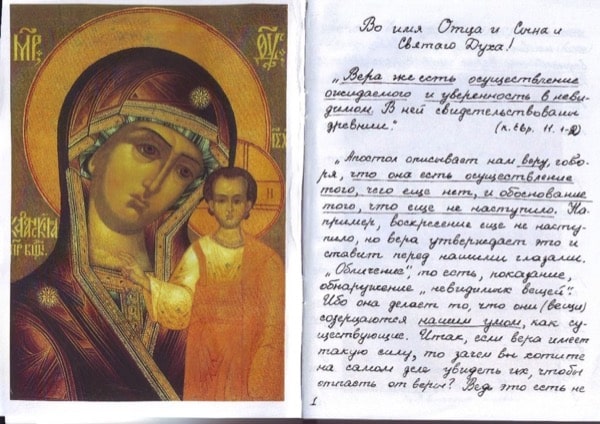 МР
ѲУ
Во имя Отца и Сына и
Святаго Духа!
„Вера же есть осуществление
ожидаемого и уверенность в неви-
димом. В ней свидетельствованы
древние."
(к Евр. 11. 1-2)
„Апостол описывает нам веру, гово-
ря, что она есть осуществление
того, чего еще нет, и обоснование
того, что еще не наступило. На-
пример, воскресение еще не насту-
пило, но вера утверждает это и
ставит перед нашими глазами.
„Обличение", то есть, показание,
обнаружение „невидимых вещей".
Ибо она делает то, что они (вещи)
созерцаются нашим умом, как су-
ществующие. Итак, если вера имеет
такую силу, то зачем вы хотите
на самом деле увидеть их, чтобы
отпасть от веры? Ведь это есть не
1